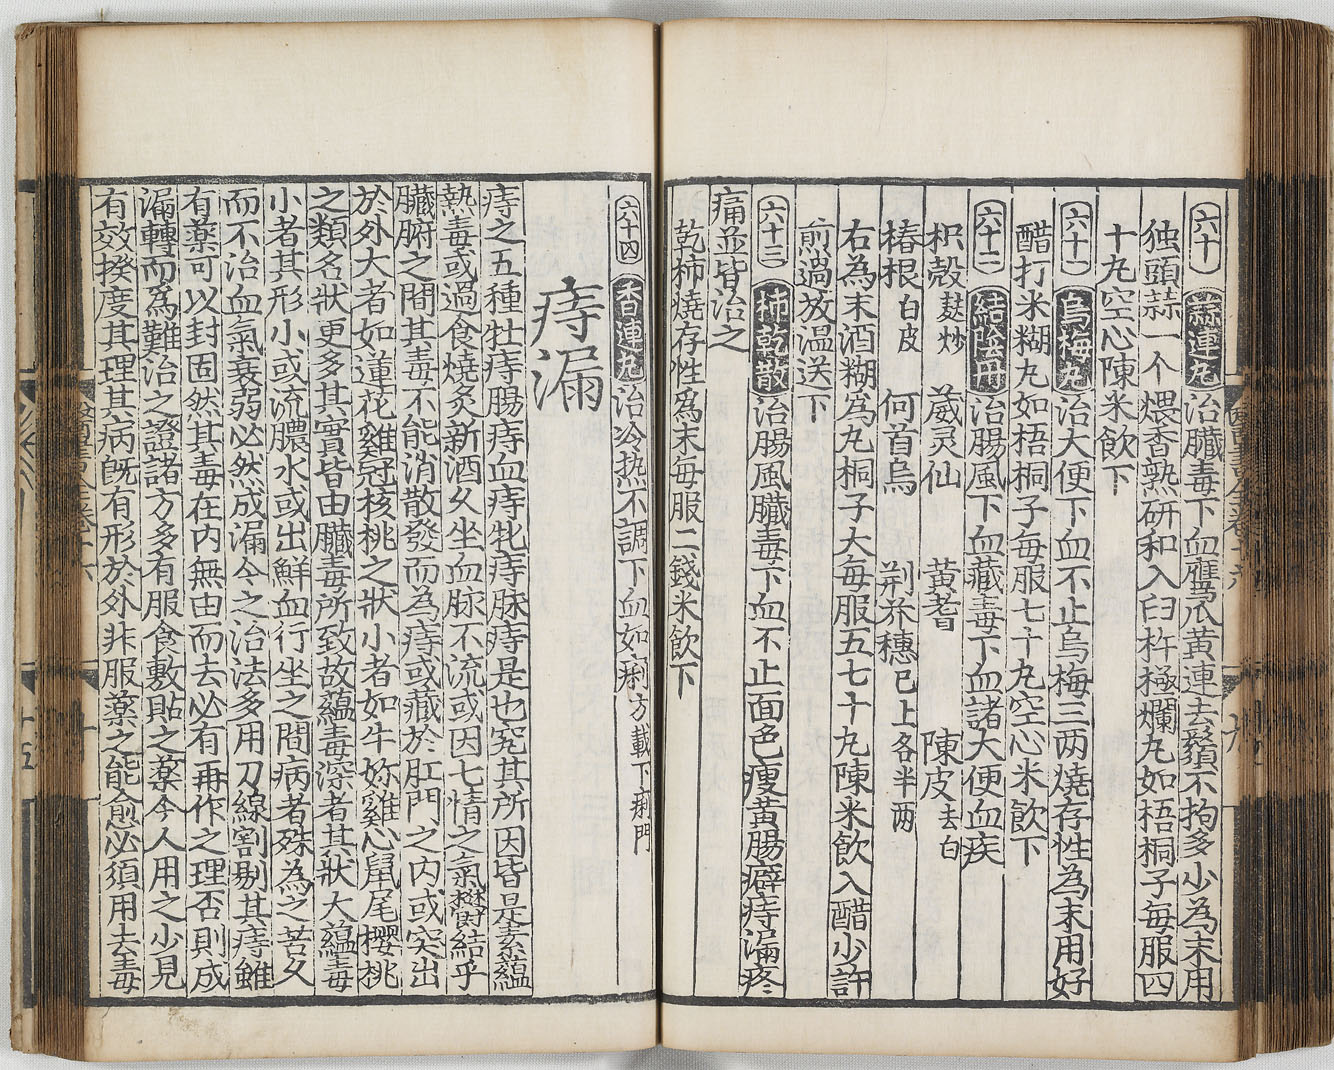 六十 蒜連丸 治臟毒下血鷹爪黃連去鬚不拘多少為末用
独頭蒜一个煨香熟研和入臼杵極爛丸如梧桐子每服四
十丸空心陳米飲下
六十一 烏梅丸 治大便下血不止烏梅三两燒存性為末用好
醋打米糊丸如梧桐子每服七十丸空心米飲下
六十二 結陰丹 治腸風下血藏毒下血諸大便血疾
枳殼麸炒 葳灵仙 黃耆 陳皮去白
椿根白皮 何首烏 荆芥穗已上各半两
右為末酒糊為丸桐子大每服五七十丸陳米飲入醋少許
煎過放溫送下
六十三 柿乾散 治腸風臟毒下血不止面色瘦黃腸癖痔漏疼
痛並皆治之
乾柿燒存性爲末每服二錢米飲下
六十四 香連丸 治冷热不調下血如痢方載下痢門
痔漏
痔之五種牡痔腸痔血痔牝痔脉痔是也究其所因皆是素蘊
熱毒或過食燒炙新酒久坐血脉不流或因七情之氣鬱結乎
臟腑之間其毒不能消散發而為痔或藏於肛門之内或突出
於外大者如蓮花雞冠核桃之狀小者如牛妳雞心鼠尾櫻桃
之類名狀更多其實皆由臟毒所致故蘊毒深者其狀大蘊毒
小者其形小或流膿水或出鮮血行坐之間病者殊為之苦久
而不治血氣衰弱必然成漏今之治法多用刀線割剔其痔雖
有藥可以封固然其毒在内無由而去必有再作之理否則成
漏轉而為難治之證諸方多有服食敷貼之藥今人用之少見
有效揆度其理其病既有形於外非服藥之能愈必須用去毒